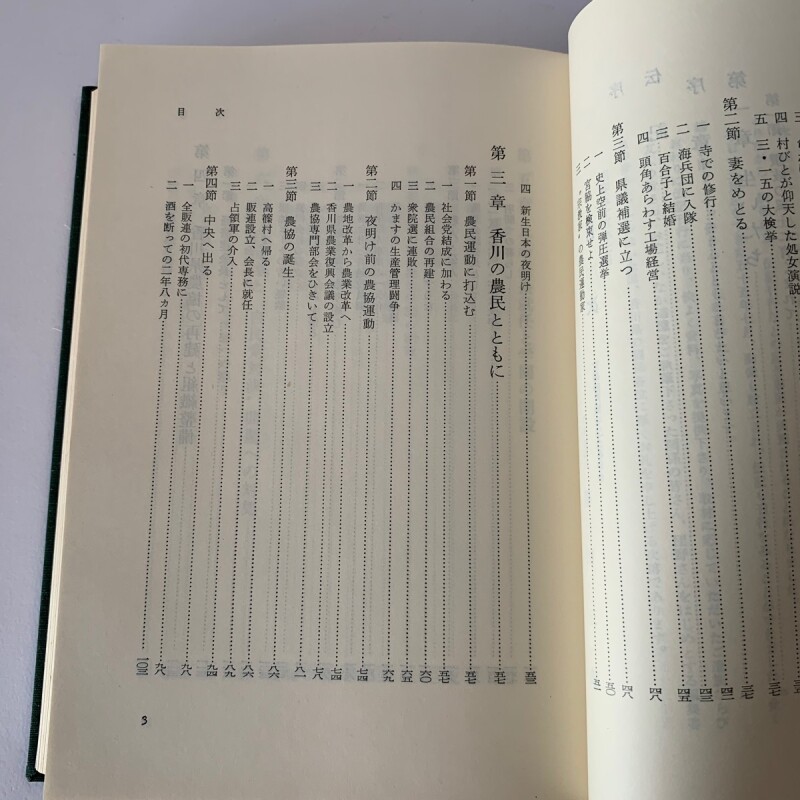 四 村びとが仰天した処女演説
五 三・一五の大検挙……三五
第二節 妻をめとる……三七
一 寺での修行……三七
二 海兵団に入隊……四二
三 百合子と結婚……四三
四 頭角あらわす工場経営……四五
第三節 県議補選に立つ……四八
一 史上空前の弾圧選挙……四八
二 官憲を検束せよ……五〇
の農民運動家……五一
目次
四 新生日本の夜明け……五三
第三章 香川の農民とともに……五七
第一節 農民運動に打込む……五七
一 社会党結成に加わる……五七
二 農民組合の再建……六〇
三 衆院選に連敗……六五
四 かますの生産管理闘争……六九
第二節 夜明け前の農協運動……七四
一 農地改革から農業改革へ……七四
二 香川県農業復興会議の設立……七八
三 農協専門部会をひきいて……八一
第三節 農協の誕生……八六
一 高篠村へ帰る……八六
二 販連設立、会長に就任……八九
三 占領軍の介入……九四
第四節 中央へ出る……九八
一 全販連の初代専務に……九八
二 酒を断っての二年八カ月……一〇三
3